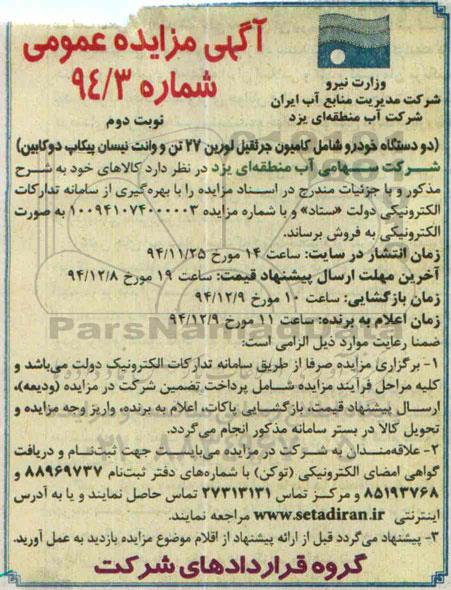 آگهی مزایده عمومی
شماره ۹۴/۳
نوبت دوم
وزارت نیرو
شرکت مدیریت منابع آب ایران
شرکت آب منطقه‌ای یزد
(دو دستگاه خودرو شامل کامیون جرثقیل لورین ۲۷ تن و وانت نیسان پیکاپ دوکابین)
شرکت سهامی آب منطقه‌ای یزد در نظر دارد کالاهای خود به شرح
مذکور و با جزئیات مندرج در اسناد مزایده را با بهره‌گیری از سامانه تدارکات
الکترونیکی دولت «ستاد» و با شماره مزایده ۱۰۰۹۴۱۰۷۴۰۰۰۰۰۳ به صورت
الکترونیکی به فروش برساند.
زمان انتشار در سایت: ساعت ۱۴ مورخ ۹۴/۱۱/۲۵
آخرین مهلت ارسال پیشنهاد قیمت: ساعت ۱۹ مورخ ۹۴/۱۲/۸
زمان بازگشایی: ساعت ۱۰ مورخ ۹۴/۱۲/۹
زمان اعلام به برنده: ساعت ۱۱ مورخ ۹۴/۱۲/۹
ضمنا رعایت موارد ذیل الزامی است:
۱- برگزاری مزایده صرفا از طریق سامانه تدارکات الکترونیک دولت می‌باشد و
کلیه مراحل فرآیند مزایده شامل پرداخت تضمین شرکت در مزایده (ودیعه)،
ارسال پیشنهاد قیمت، بازگشایی پاکات، اعلام به برنده، واریز وجه مزایده و
تحویل کالا در بستر سامانه مذکور انجام می‌گردد.
۲- علاقه‌مندان به شرکت در مزایده می‌بایست جهت ثبت‌نام و دریافت
گواهی امضای الکترونیکی (توکن) با شماره‌های دفتر ثبت‌نام ۸۸۹۶۹۷۳۷ و
۸۵۱۹۳۷۶۸ و مرکز تماس ۲۷۳۱۳۱۳۱ تماس حاصل نمایند و یا به آدرس
اینترنتی www.setadiran.ir مراجعه نمایند.
۳- پیشنهاد می‌گردد قبل از ارائه پیشنهاد از اقلام موضوع مزایده بازدید به عمل آورید.
گروه قراردادهای شرکت
ParsNamadData